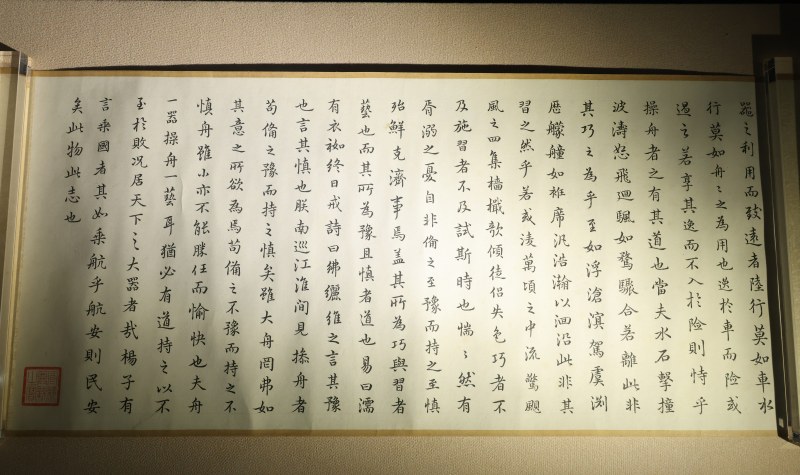 器之利用而致遠者陸行莫如車水
行莫如舟舟之為用也逸於車而險或
過之善享其逸而不入於險則恃乎
操舟者之有其道也當夫水石擊撞
波濤怒飛迴颿如騖驟合若離此非
其巧之為乎至如浮滄溟駕虞渕
歴艨艟如袵席汎浩瀚以洄沿此非其
習之然乎若或淩萬頃之中流驚颶
風之四集檣檝欹傾徒侣失色巧者不
及施習者不及試斯時也惴〻然有
胥溺之憂自非偹之至豫而持之至慎
殆鮮克濟事焉盖其所為巧與習者
藝也而其所為豫且慎者道也易曰濡
有衣袽終日戒詩曰紼纚維之言其豫
也言其慎也朕南巡江淮間見操舟者
苟偹之豫而持之慎矣雖大舟罔弗如
其意之所欲為焉苟備之不豫而持之不
慎舟雖小亦不能勝任而愉快也夫舟
一器操舟一藝耳猶必有道持之以不
至於敗况居天下之大器者哉楊子有
言乘國者其如乘航乎航安則民安
矣此物此志也